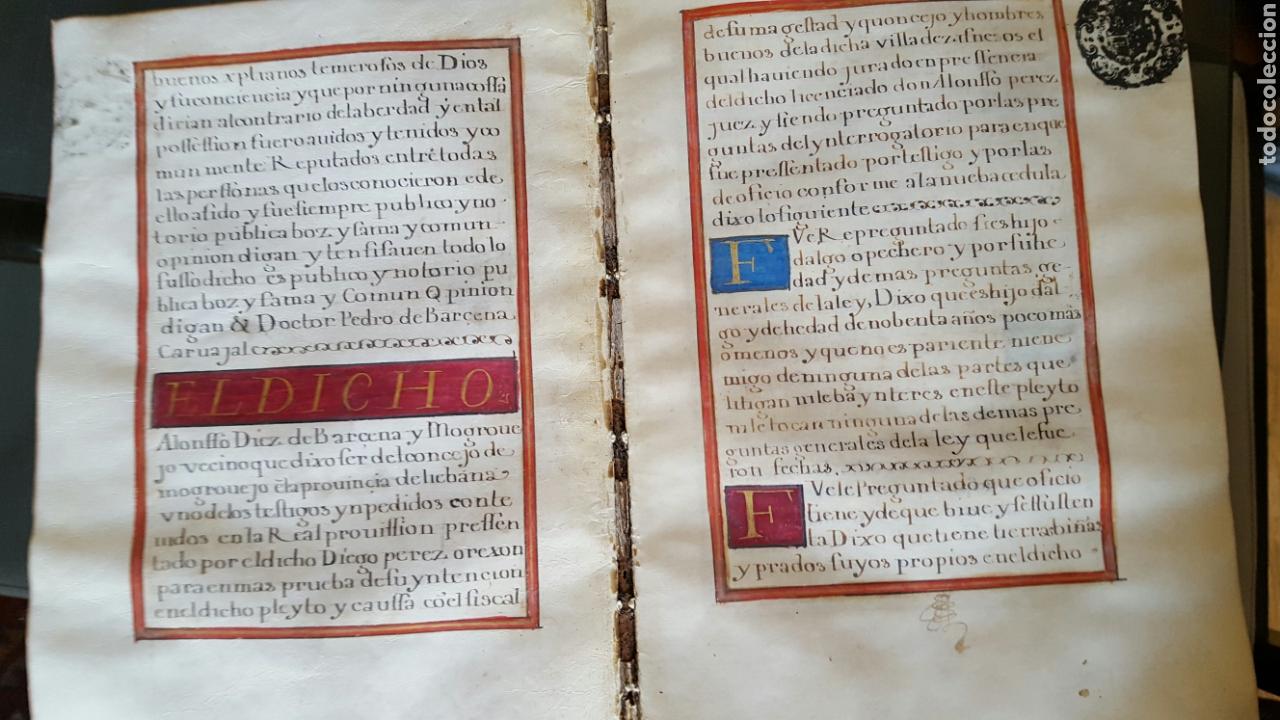 buenos xptianos temerosos de Dios
y su conciencia y que por ninguna cossa
dirian al contrario de la berdad y en tal
possession fuero auidos y tenidos y co
mun mente Reputados entrê todas
las perssonas que los conocieron e de
ello a sido y fue siempre publico y no
torio publica boz y fama y comun
opinion digan y ten si sauen todo lo
susso dicho es publico y notorio pu
blica boz y fama y Comun Opinion
digan & Doctor Pedro de Barcena
Caruajal
EL DICHO
Alonsso Diez de Barcena y Mogroue
jo vecino que dixo ser del concejo de
mogrouejo ẽ la prouincia de liebana
vno de los testigos ynpedidos conte
nidos en la Real prouission pressen
tado por el dicho Diego perez orexon
para en mas prueba de su yntencion
en el dicho pleyto y caussa cõ el fiscal
de su magestad y quoncejo y hombres
buenos de la dicha villa de zisneros el
qual hauiendo jurado en pressencia
del dicho licenciado don Alonsso perez
juez y siendo preguntado por las pre
guntas del ynterrogatorio para en que
fue pressentado por testigo y por las
de oficio conforme a la nueba cedula
dixo lo siguiente
FVe Repreguntado si es hijo
dalgo o pechero y por su he
dad y demas preguntas ge
nerales de la ley, Dixo que es hijo dal
go y de hedad de nobenta años poco mas
o menos y que no es pariente ni ene
migo de ninguna de las partes que
litigan ni le ba ynteres en este pleyto
ni le tocan ninguna de las demas pre
guntas generales de la ley que le fue
ron fechas
FVele Preguntado que oficio
tiene y de que biue y se sussten
ta Dixo que tiene tierras biñas
y prados suyos propios en el dicho
todocoleccion